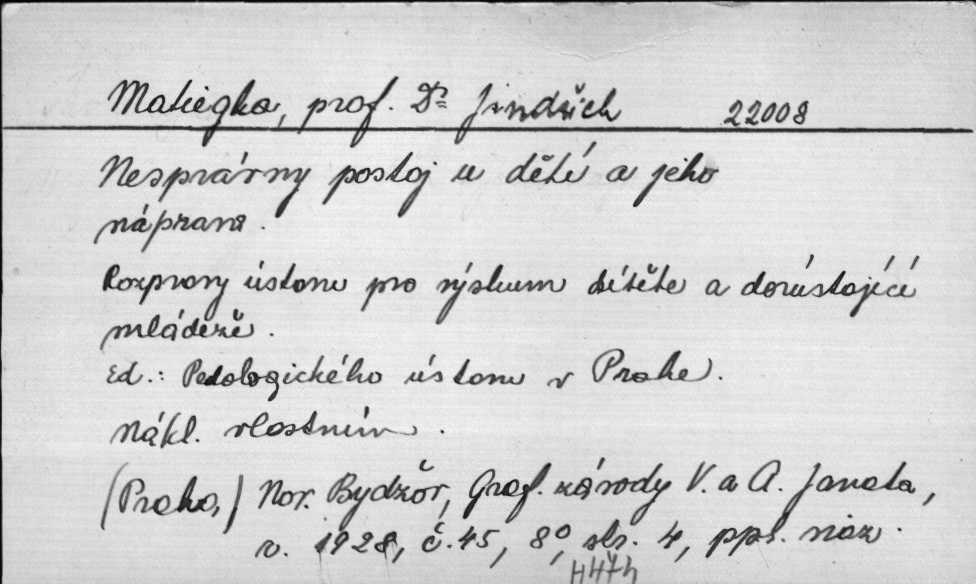 Matiegka, prof. Dr. Jindřich 22008
Nesprávny postoj u dětí a jeho
náprava.
Rozpravy ústavu pro výzkum dítěte a dorústající
mládeže.
Ed.: Pedologického ústavu v Praze.
Nákl. vlastním.
(Praha,) Nov. Bydžov, Graf. závody V. a A. Janata,
v. 1928, č. 45, 8°, str. 4, ppř. náz.